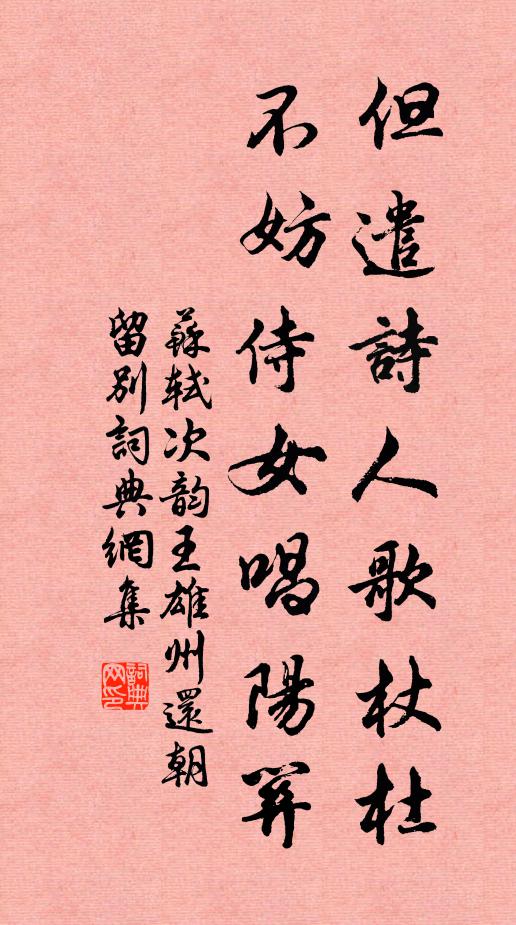 但遣詩人歌杕杜
不妨侍女唱陽關
蘇軾次韵王雄州還朝
留別詞典網集
詞典
网印